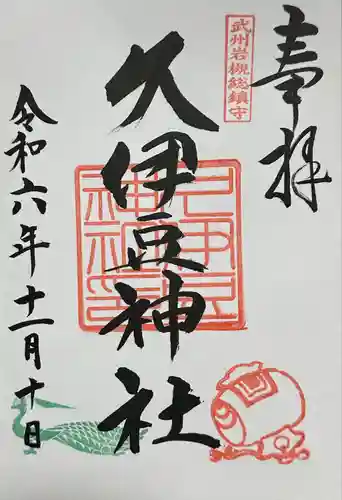 奉拝
武州岩槻総鎮守
久伊豆神社
久伊豆神社印
令和六年十一月十日